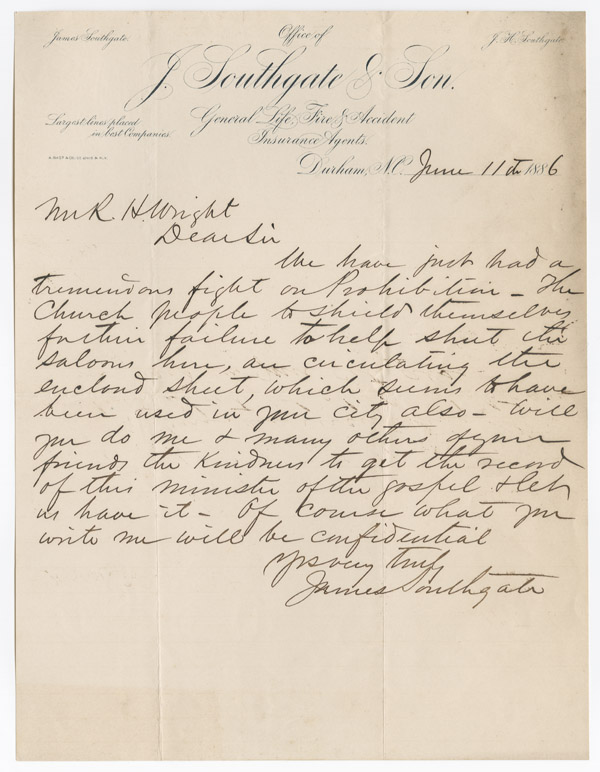 James Southgate.
Office of
J. H. Southgate
J. Southgate & Son.
Largest lines placed
in best Companies.
General Life, Fire & Accident
Insurance Agents.
Durham, N.C. June 11th 1886
Mr R. H. Wright
Dear Sir
We have just had a
tremendous fight on Prohibition - The
Church people to shield themselves
for their failure to help shut the
saloons here, are circulating the
enclosed sheet, which seems to have
been used in your city also - Will
you do me & many others of your
friends the kindness to get the record
of this minister of the gospel & let
us have it - Of course what you
write me will be confidential
Yrs very truly
James Southgate